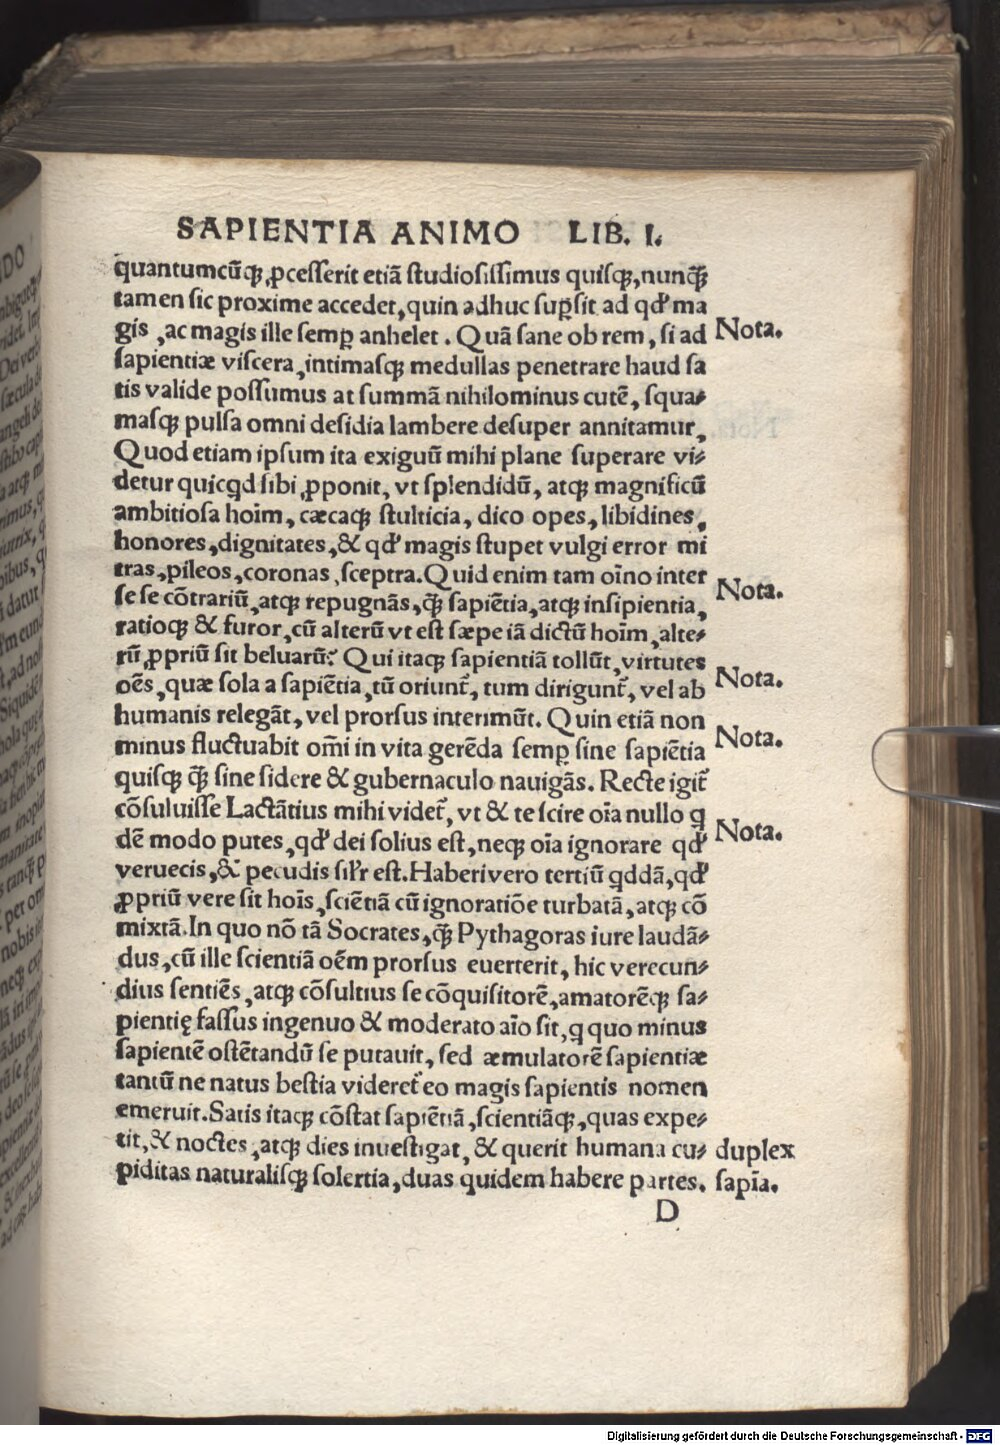 SAPIENTIA ANIMO LIB. I.
quantumcūqꝫ ꝓcesserit etiā studiosissimus quisqꝫ, nunqꝫ̄
tamen sic proxime accedet, quin adhuc sup̱sit ad qđ ma
gis, ac magis ille semp̱ anhelet. Quā sane ob rem, si ad
Nota.
sapientiæ viscera, intimasqꝫ medullas penetrare haud sa
tis valide possumus at summā nihilominus cutē, squa⸗
masqꝫ pulsa omni desidia lambere desuper annitamur,
Quod etiam ipsum ita exiguū mihi plane superare vi⸗
detur quicꝗd sibi ꝓponit, vt splendidū, atqꝫ magnificū
ambitiosa hoīm, cæcaqꝫ stulticia, dico opes, libidines,
honores, dignitates, & qđ magis stupet vulgi error mi
tras, pileos, coronas, sceptra. Quid enim tam oīno inter
Nota.
se se cōtrariū, atqꝫ repugnās, qꝫ̄ sapiētia, atqꝫ insipientia,
ratioqꝫ & furor, cū alterū vt est sæpe iā dictū hoīm, alte⸗
rū ꝓpriū sit beluarū? Qui itaqꝫ sapientiā tollūt, virtutes
oēs, quæ sola a sapiētia, tū oriunt᷑, tum dirigunt᷑, vel ab
Nota.
humanis relegāt, vel prorsus interimūt. Quin etiā non
minus fluctuabit om̄i in vita gerēda semp̱ sine sapiētia
Nota.
quisqꝫ qꝫ̄ sine sidere & gubernaculo nauigās. Recte igit᷑
cōsuluisse Lactātius mihi videt᷑, vt & te scire oīa nullo ꝗ
dē modo putes, qđ dei solius est, neqꝫ oīa ignorare qđ
Nota.
veruecis, & pecudis sil'r est. Haberi vero tertiū ꝗddā, qđ
ꝓpriū vere sit hoīs, sciētiā cū ignoratiōe turbatā, atqꝫ cō
mixtā. In quo nō tā Socrates, qꝫ̄ Pythagoras iure laudā⸗
dus, cū ille scientiā oēm prorsus euerterit, hic verecun⸗
dius sentiēs, atqꝫ cōsultius se cōquisitorē, amatorēqꝫ sa⸗
pientię fassus ingenuo & moderato aīo sit, ꝗ quo minus
sapientē ostētandū se putauit, sed æmulatorē sapientiæ
tantū ne natus bestia videret᷑ eo magis sapientis nomen
emeruit. Satis itaqꝫ cōstat sapiētiā, scientiāqꝫ, quas expe⸗
tit, & noctes, atqꝫ dies inuestigat, & querit humana cu⸗
duplex
piditas naturalisqꝫ solertia, duas quidem habere partes.
sapīa.
D
Digitalisierung gefördert durch die Deutsche Forschungsgemeinschaft - DFG